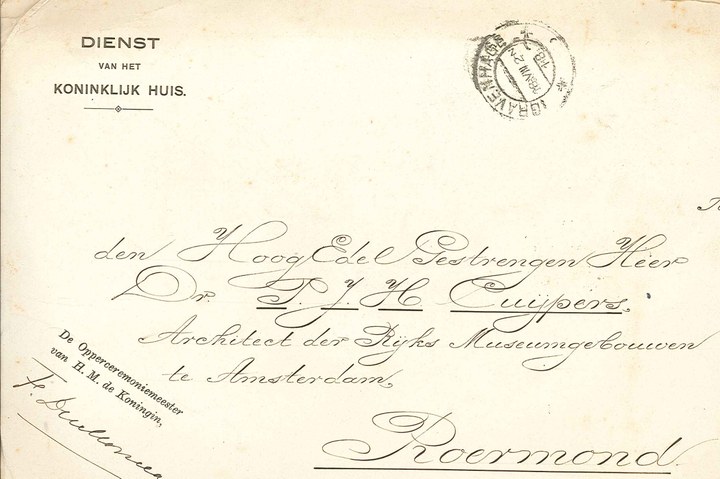 DIENST
VAN HET
KONINKLIJK HUIS.
'SGRAVENHAGE
den HoogEdel Gestrengen Heer
Dr. P. J. H. Cuijpers,
Architect der Rijks Museumgebouwen
te Amsterdam,
Roermond.
De Opperceremoniemeester
van H. M. de Koningin,